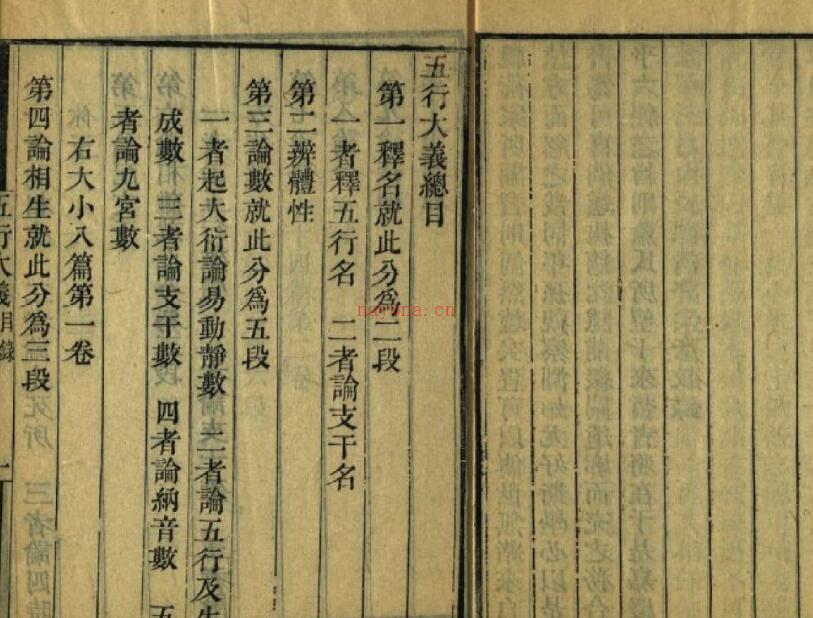 五行大義總目
第一釋名就此分爲二段
一者釋五行名 二者論支干名
第二辨體性
第三論數就此分爲五段
一者起大衍論易動靜數 二者論五行及生
成數 三者論支干數 四者論納音數 五
者論九宮數
右大小八篇第一卷
第四論相生就此分爲三段
五行大義目錄 一
nayona.cn